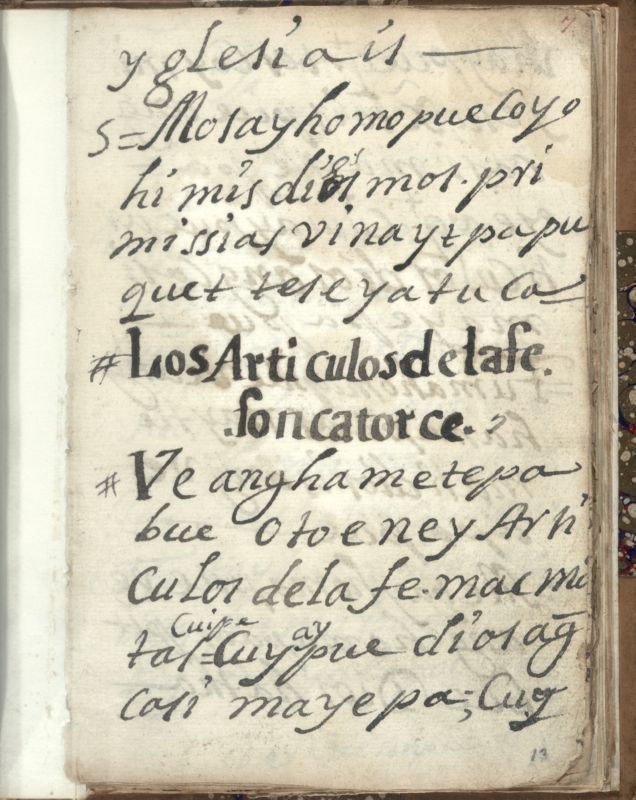 yglesiais
5=Mosayhomopuecoyo
hi mis dios mos. pri
missias vinaytpapu
quet teseyatuca
#Los Articulosdelafe.
.soncatorce.
#Ve anghametepa
bue otoeney Arti
culos delafe.macmi
Cuipe ay
tas=Cuypue diosag̃
casi mayepa=,Cuy
13